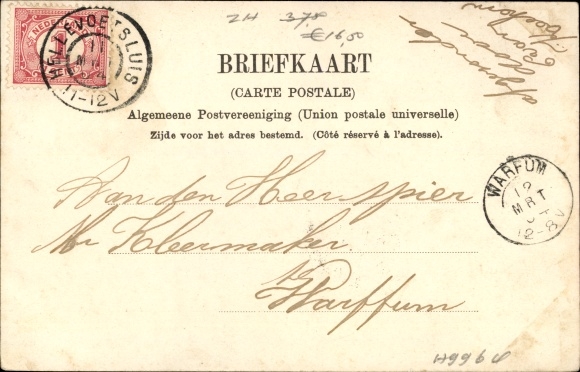 ZH 3,70
€16,50
NEDERL
HELLEVOETSLUIS
11
11-12V
afzender
BRIEFKAART
(CARTE POSTALE)
Algemeene Postvereeniging (Union postale universelle)
Zijde voor het adres bestemd. (Côté réservé à l'adresse).
WARFUM
12
MRT
04
12-8V
Aan den Heer spier
Mr Kleermaker
te
Warffum